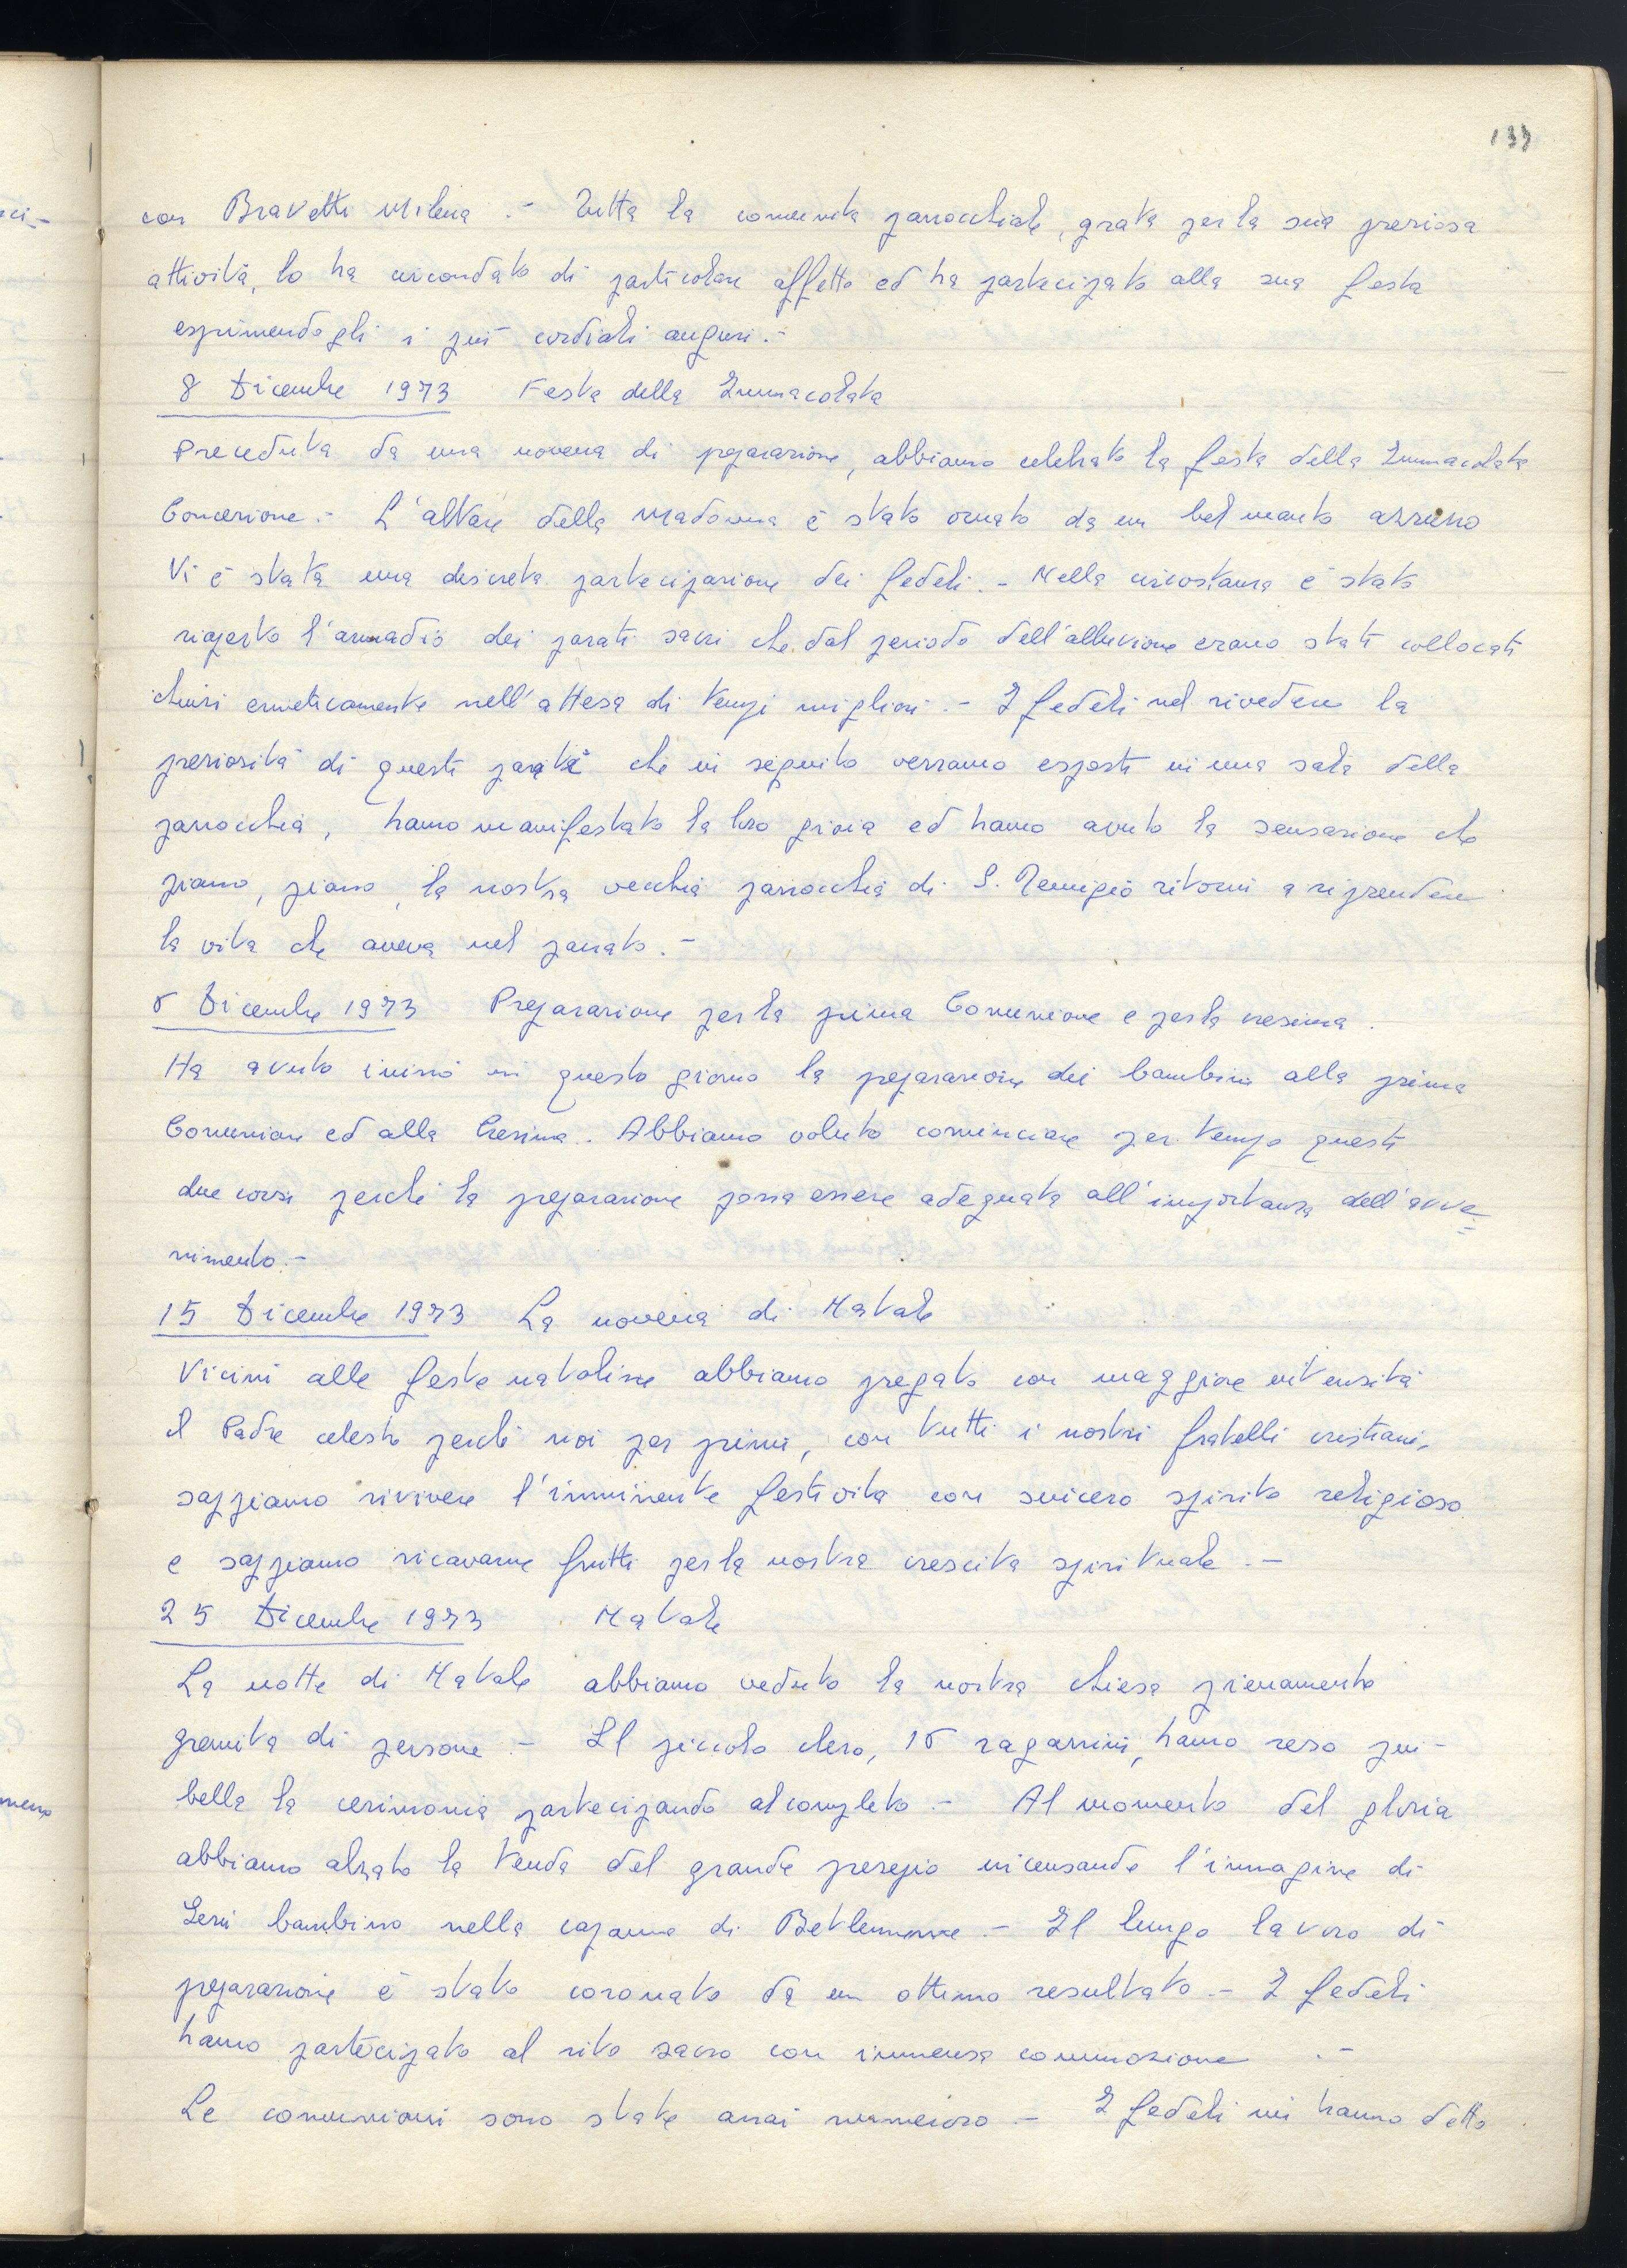 133
con Bravetti Milena .- Tutta la comunità parrocchiale, grata per la sua preziosa
attività, lo ha circondato di particolare affetto ed ha partecipato alla sua festa
esprimendogli i più cordiali auguri.-
8 Dicembre 1973 Festa della Immacolata
Preceduta da una novena di preparazione, abbiamo celebrato la festa della Immacolata
Concezione.- L'altare della Madonna è stato ornato da un bel manto azzurro
Vi è stata una discreta partecipazione dei fedeli.- Nella circostanza è stato
riaperto l'armadio dei parati sacri che dal periodo dell'alluvione erano stati collocati
chiusi ermeticamente nell'attesa di tempi migliori.- I fedeli nel rivedere la
preziosità di questi parati che in seguito verranno esposti in una sala della
parrocchia, hanno manifestato la loro gioia ed hanno avuto la sensazione che
piano, piano, la nostra vecchia parrocchia di S. Remigio ritorni a riprendere
la vita che aveva nel passato.-
8 Dicembre 1973 Preparazione per la prima Comunione e per la cresima.
Ha avuto inizio in questo giorno la preparazione dei bambini alla prima
Comunione ed alla Cresima. Abbiamo voluto cominciare per tempo questi
due corsi perché la preparazione possa essere adeguata all'importanza dell'avve=
nimento.-
15 Dicembre 1973 La novena di Natale
Vicini alle feste natalizie abbiamo pregato con maggiore intensità
il Padre celeste perché noi per primi, con tutti i nostri fratelli cristiani,
sappiamo rivivere l'imminente festività con sincero spirito religioso
e sappiamo ricavarne frutti per la nostra crescita spirituale.-
25 Dicembre 1973 Natale
La notte di Natale abbiamo veduto la nostra chiesa pienamente
gremita di persone.- Il piccolo clero, 18 ragazzini, hanno reso più
bella la cerimonia partecipando al completo.- Al momento del gloria
abbiamo alzato la tenda del grande presepio incensando l'immagine di
Gesù bambino nella capanna di Betlemme.- Il lungo lavoro di
preparazione è stato coronato da un ottimo resultato.- I fedeli
hanno partecipato al rito sacro con immensa commozione .-
Le comunioni sono state assai numerose.- I fedeli mi hanno detto